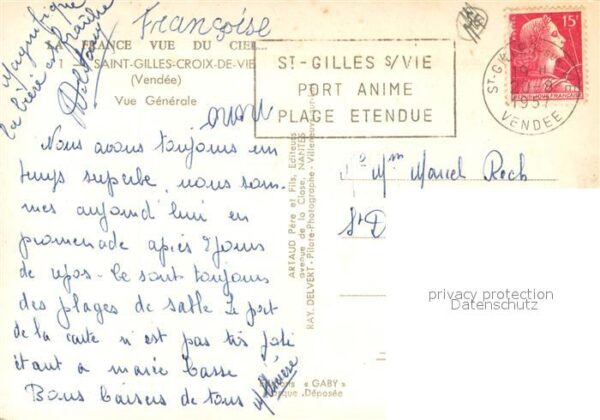 Françoise
Magnifique
la bière est fraîche
LA FRANCE VUE DU CIEL...
1 - SAINT-GILLES-CROIX-DE-VIE
(Vendée)
Vue Générale
Nous avons toujours un
temps superbe, nous som-
mes aujourd'hui en
promenade après 2 jours
de repos. Ce sont toujours
des plages de sable le port
de la carte n'est pas très joli
étant a marée basse
Bons baisers de tous
ARTAUD Père et Fils, Editeurs
avenue de la Close, NANTES
RAY. DELVERT - Pilote-Photographe - Villeneuve-sur-
"GABY"
Déposée
ST-GILLES S/VIE
PORT ANIME
PLAGE ETENDUE
15F
ST-G
19
VENDEE
Mr Mm Marcel Roch
St D
privacy protection
Datenschutz